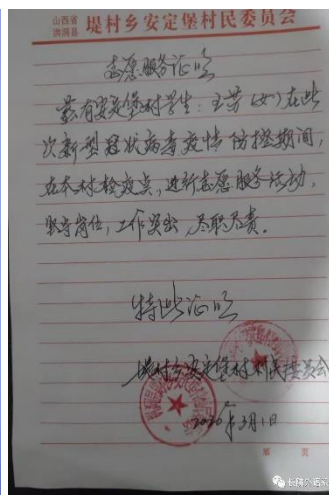 山西省
洪洞县
堤村乡安定堡村民委员会
志愿服务证明
兹有安定堡村学生：王芳（女）在此
次新型冠状病毒疫情防控期间，
在本村检疫点，进行志愿服务活动，
坚守岗位，工作突出，尽职尽责。
特此证明
堤村乡安定堡村村民委员会
2020年3月1日
第 页